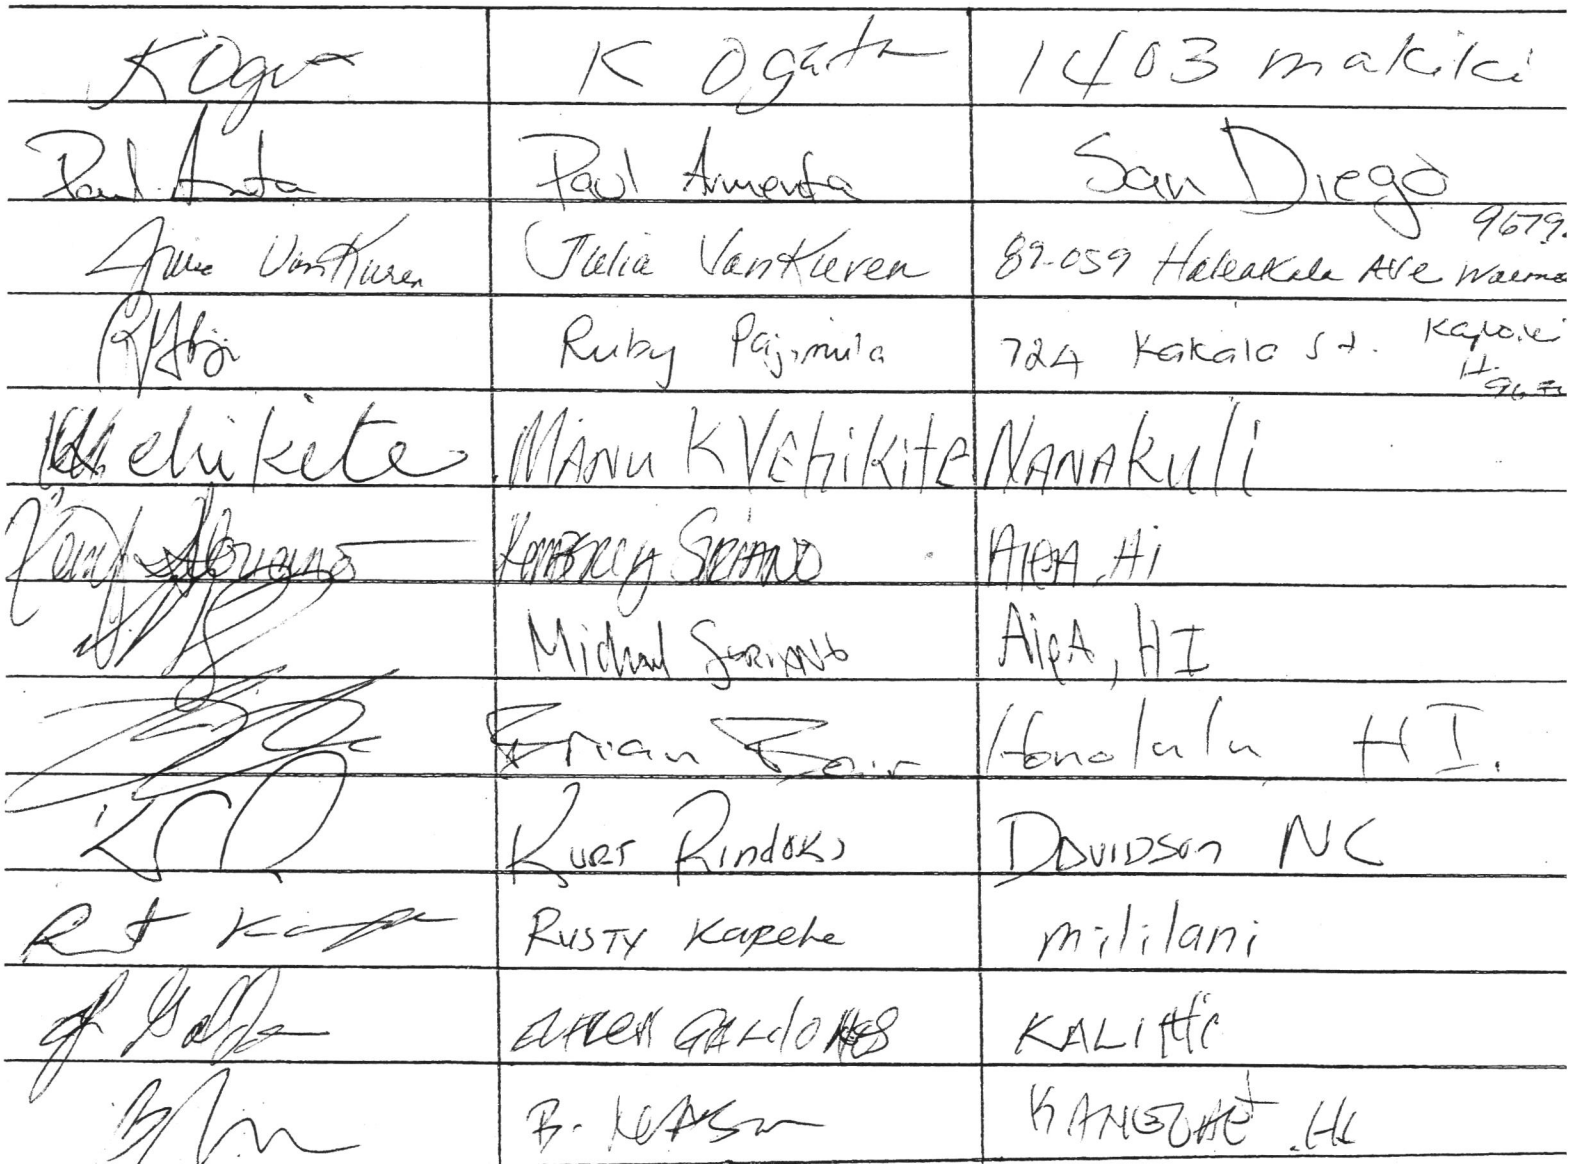 K Ogata K Ogata 1403 makiki
Paul Armenta Paul Armenta San Diego
9679.
Julia VanKuren Julia VanKuren 89-059 Haleakala Ave Waema
Ruby Pajimula 724 Kakala St. Kapolei
H.
Vehikite MANU K VEhikite NANAkuli
SORIANO AIEA, Hi
Michael SORIANO AieA, HI
Brian Bair Honolulu HI.
Kurt Rindoks DAVIDSON NC
RUSTY Kapehe mililani
GALdONES KALiHi
B. MASON KANEOHE HI